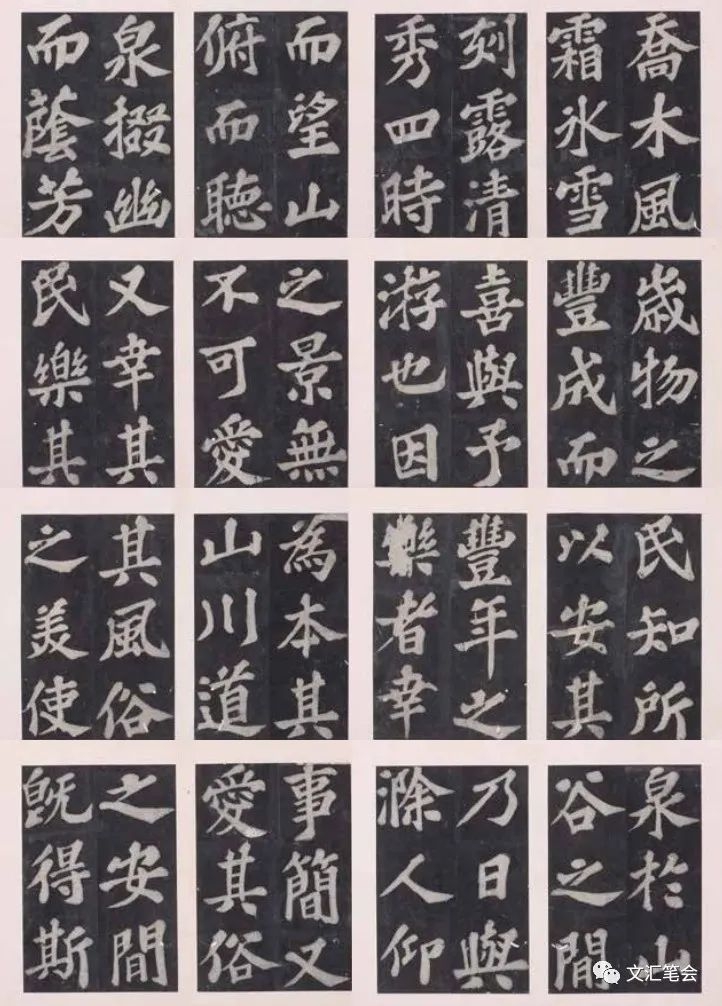 喬木風
霜冰雪
刻露清
秀四時
而望山
俯而聽
泉掇幽
而蔭芳
歲物之
豐成而
喜與予
游也因
之景無
不可愛
又幸其
民樂其
民知所
以安其
豐年之
樂者幸
為本其
山川道
其風俗
之美使
泉於山
谷之閒
乃日與
滁人仰
事簡又
愛其俗
之安閒
既得斯
文汇笔会